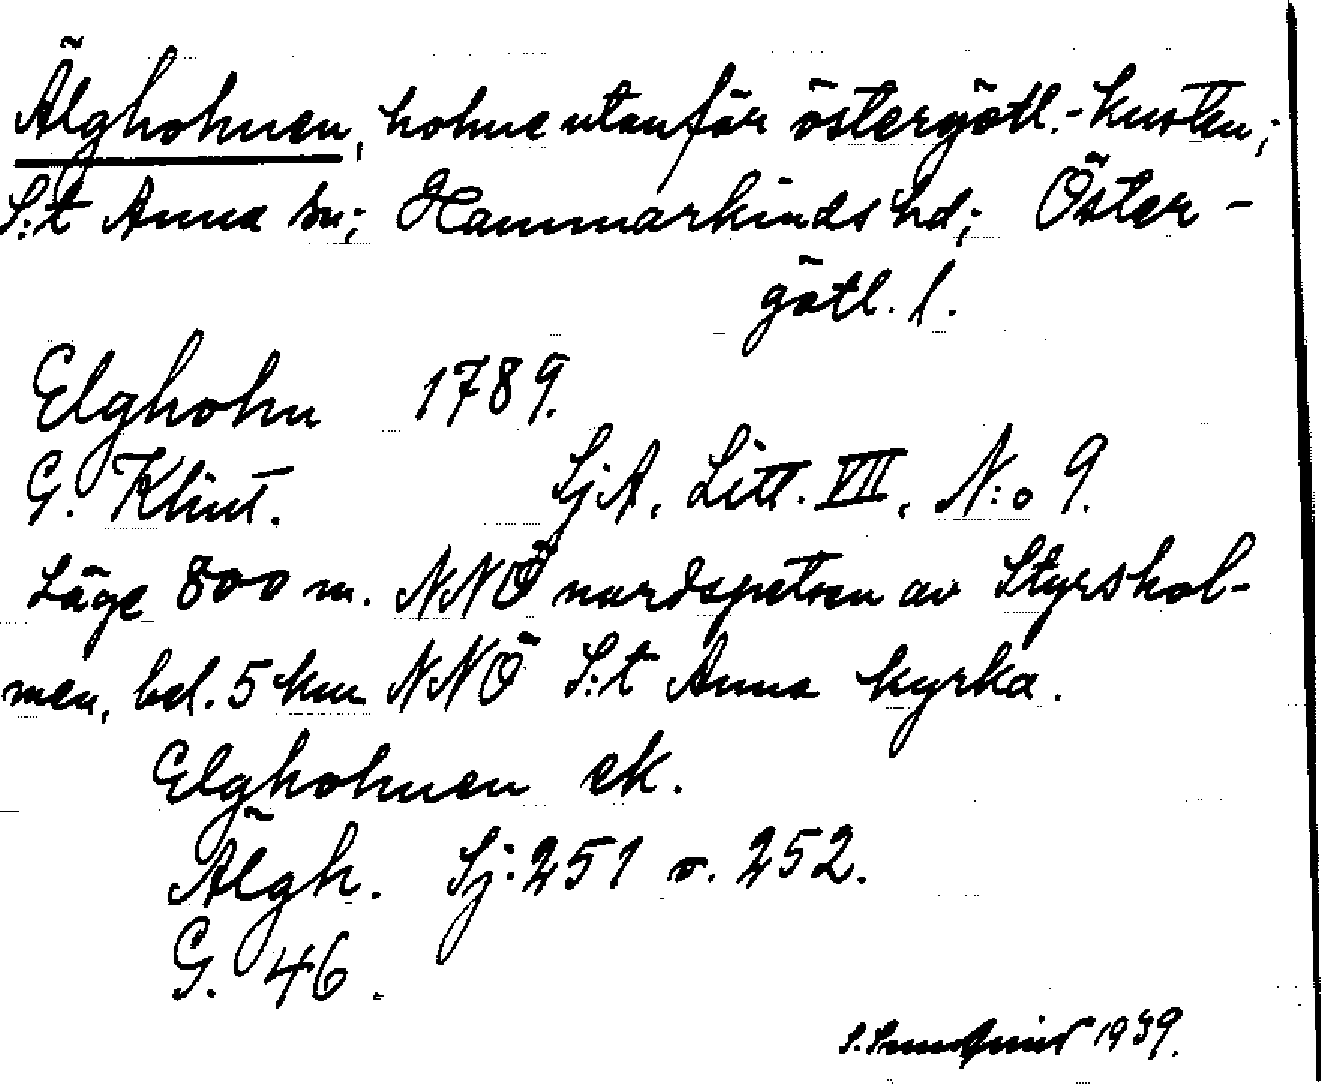 Älgholmen, holme utanför östergötl.-kusten;
S:t Anna sn; Hammarkinds hd; Öster-
götl. l.
Elgholm 1789.
G. Klint. SjA, Litt. VII, N:o 9.
Läge 800 m. NNÖ nordspetsen av Styrshol-
men, bel. 5 km NNÖ S:t Anna kyrka.
Elgholmen ek.
Älgh. Sj: 251 o. 252.
G. 46.
1939.